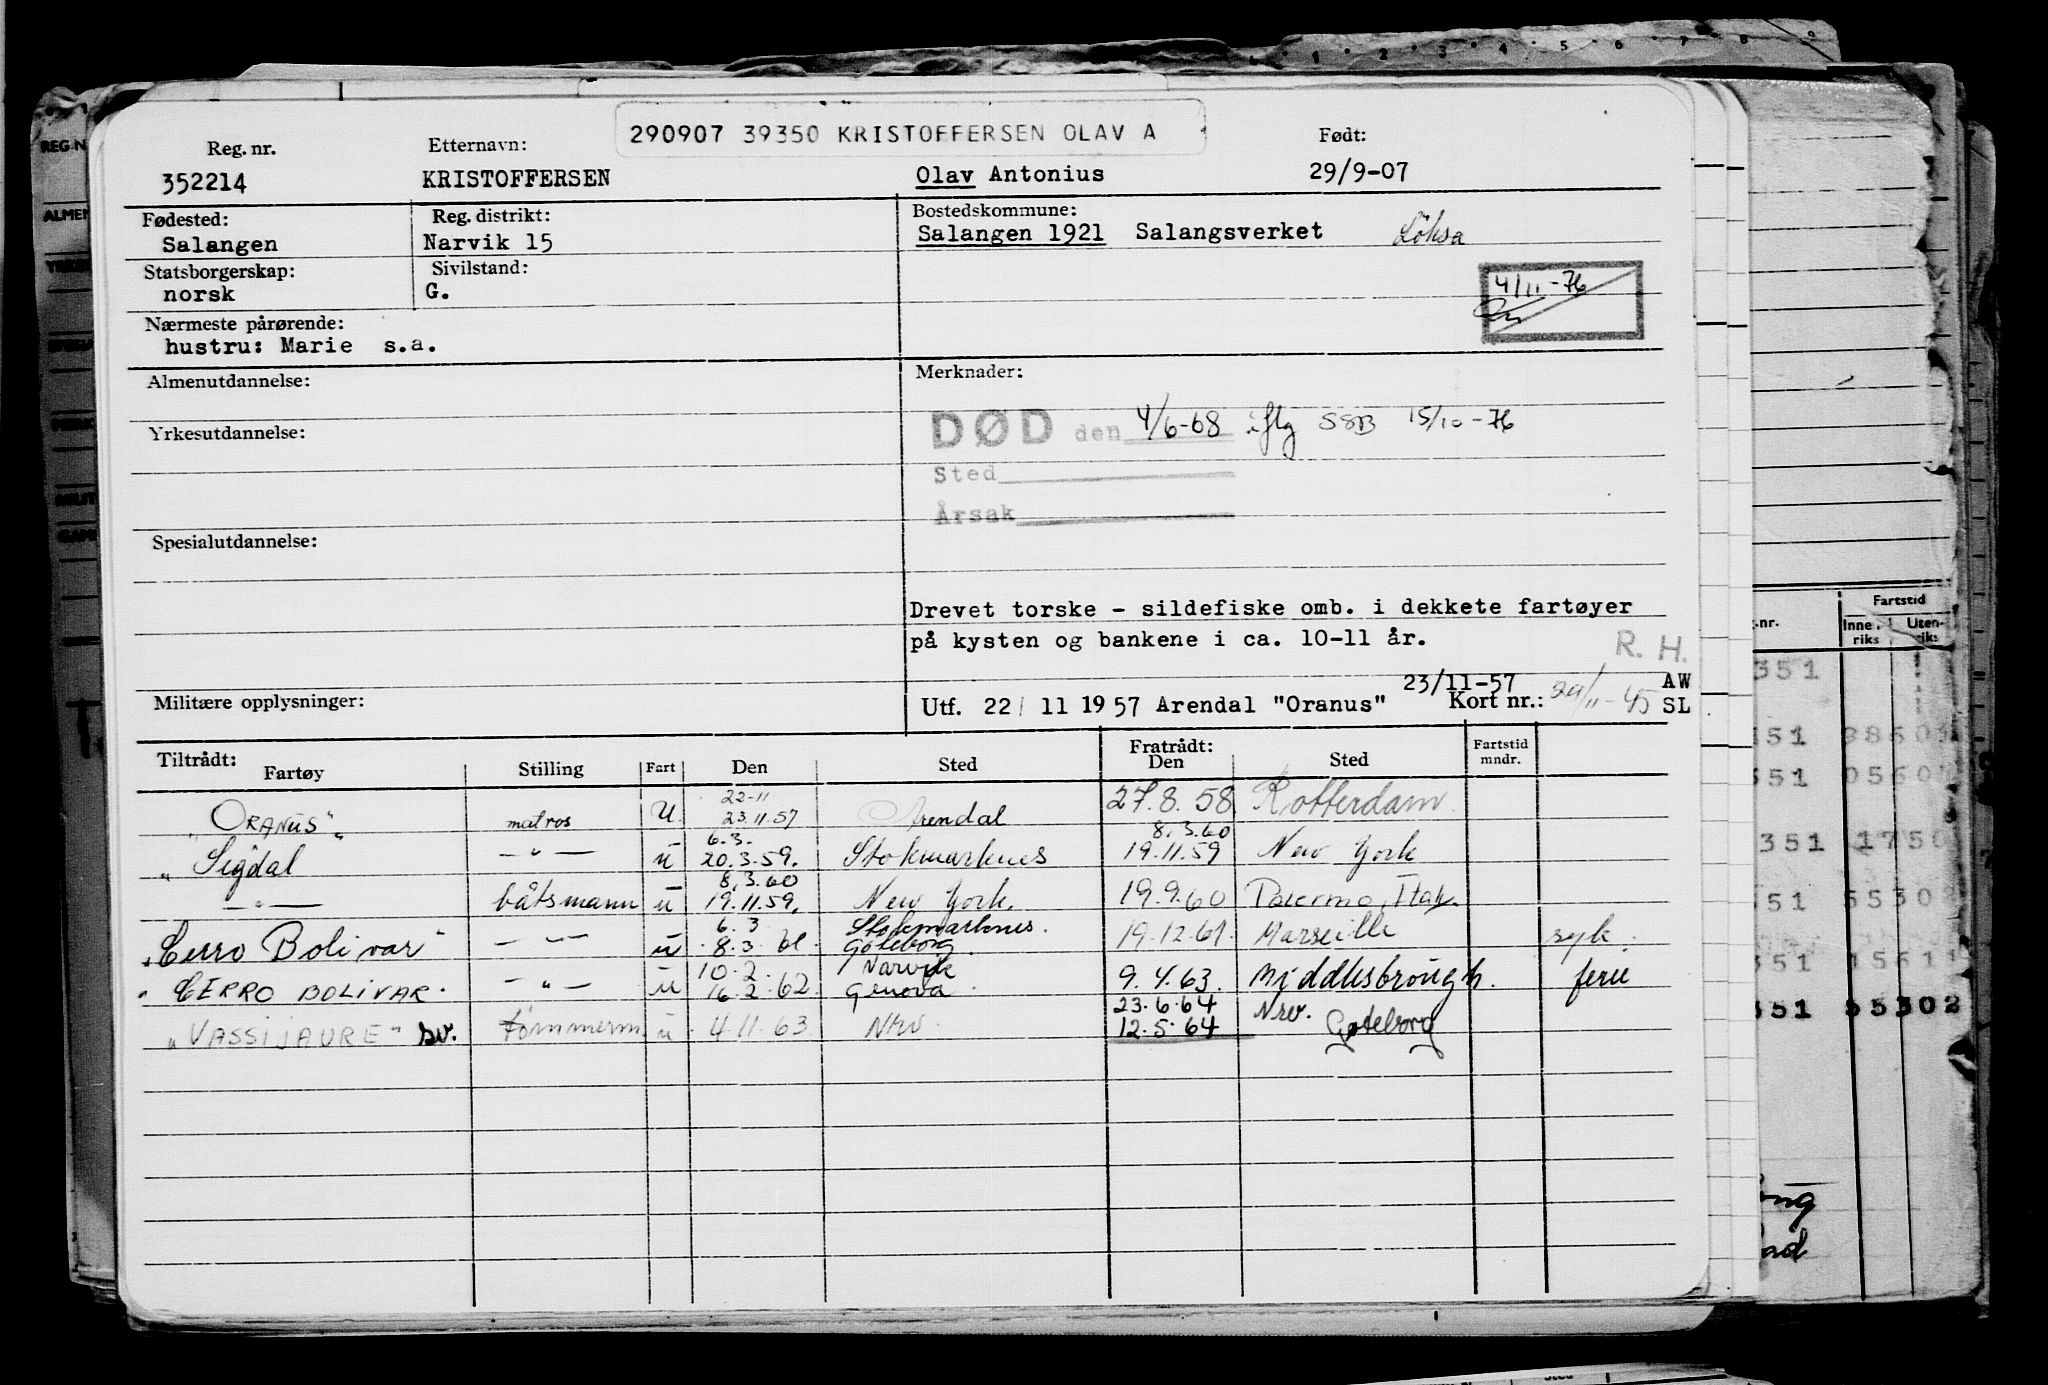 290907 39350 KRISTOFFERSEN OLAV A
Reg. nr. Etternavn: Født:
352214 KRISTOFFERSEN Olav Antonius 29/9-07
Fødested: Reg. distrikt: Bostedskommune:
Salangen Narvik 15 Salangen 1921 Salangsverket Löksa
Statsborgerskap: Sivilstand:
norsk G.
4/11-76
Nærmeste pårørende:
hustru: Marie s.a.
Almenutdannelse: Merknader:
DØD den 4/6-68 iflg SSB 15/10-76
Yrkesutdannelse:
Sted
Årsak
Spesialutdannelse:
Drevet torske - sildefiske omb. i dekkete fartøyer
på kysten og bankene i ca. 10-11 år.
R. H.
23/11-57 AW
Militære opplysninger: Utf. 22/ 11 1957 Arendal "Oranus" Kort nr.: 29/11-45 SL
Tiltrådt: Fratrådt: Fartstid
Fartøy Stilling Fart Den Sted Den Sted mndr.
22-11
"ORANUS" matros U. 23.11.57 Arendal 27.8.58 Rotterdam
6.3. 8.3.60
"Sigdal — " — u 20.3.59. Stokmarknes 19.11.59 New York
8.3.60
— " — båtsmann u 19.11.59. New York. 19.9.60 Palermo, Italy.
6.3 Stokmarknes.
"Cerro Bolivar" — " — u 8.3.61. Göteborg 19.12.61. Marseille syk.
10.2. Narvik
"CERRO BOLIVAR. — " — u 16.2.62. Genova. 9.4.63. Middlesbrough. ferie
23.6.64 Nrv.
"VASSIJAURE" sv. tømmerm. u 4.11.63. Nrv. 12.5.64 Gøteborg
REG.N
ALMEN
Fartstid
.nr. Inne- riks Uten- riks
351
351 3860
351 0560
351 1750
351 55302
351 15611
351 55302